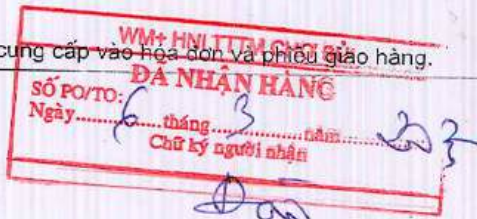 cung cấp vào hóa đơn và phiếu giao hàng.
WM+ HNI TTTM
ĐÃ NHẬN HÀNG
SỐ PO/TO:
Ngày 6 tháng 3 năm 
Chữ ký người nhận